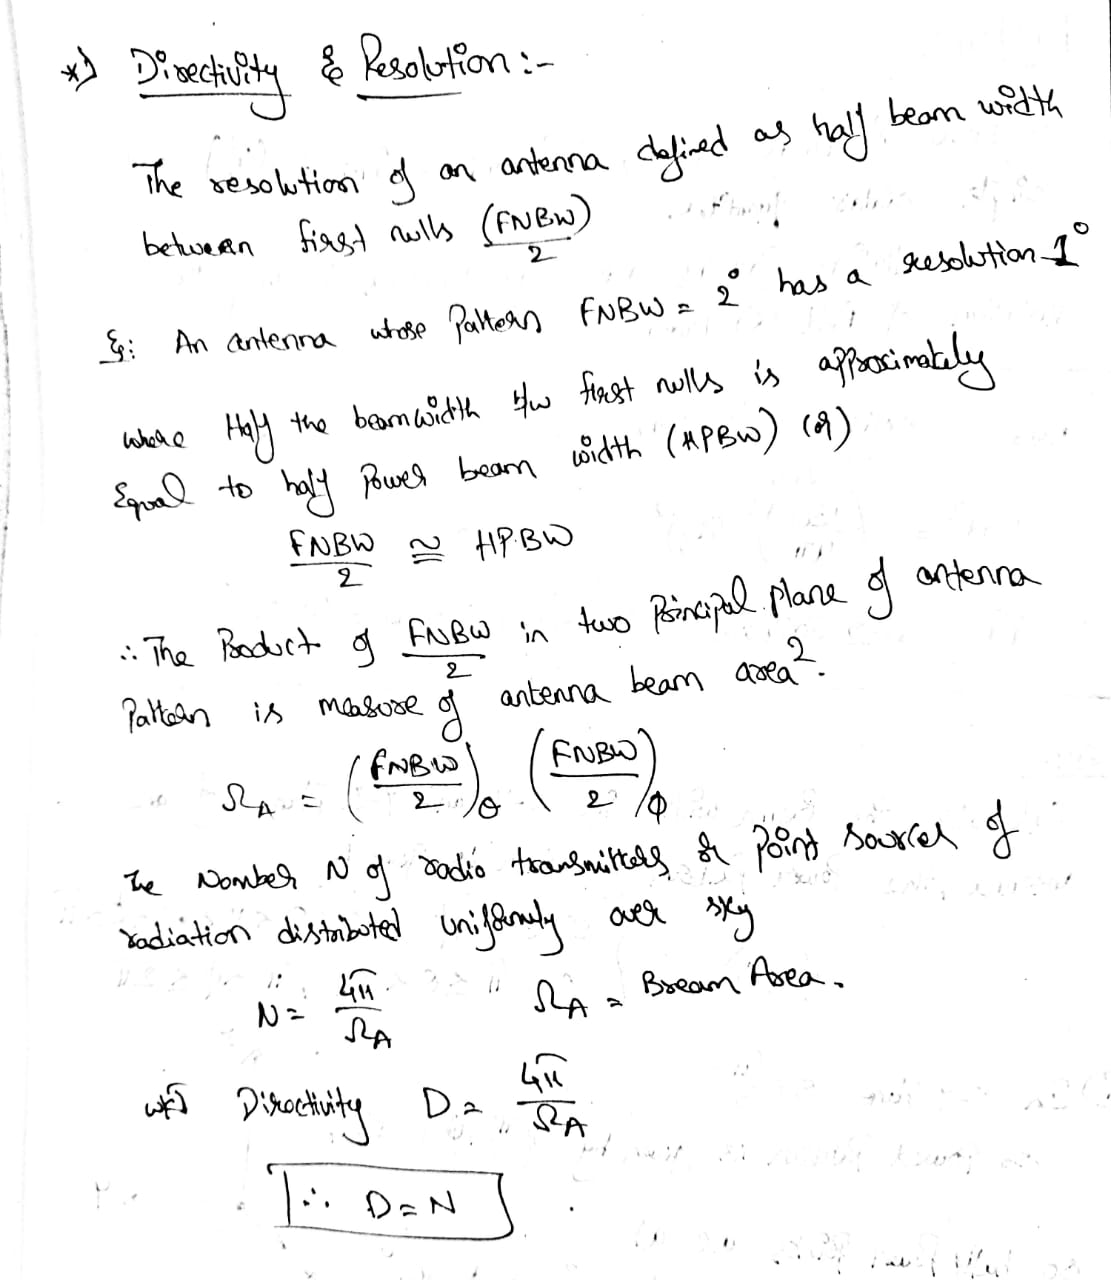 *) Directivity & Resolution :-
The resolution of an antenna defined as half beam width
between first nulls (FNBW)/2
Eg: An antenna whose Pattern FNBW = 2° has a resolution 1°
where Half the beamwidth b/w first nulls is approximately
Equal to half Power beam width (HPBW) (or)
FNBW/2 ≅ HPBW
∴ The Product of FNBW/2 in two Principal plane of antenna
Pattern is measure of antenna beam area².
Ω_A = (FNBW/2)_θ (FNBW/2)_ϕ
The Number N of radio transmitters or Point sources of
radiation distributed uniformly over sky
N = 4π/Ω_A Ω_A = Bream Area.
wkt Directivity D = 4π/Ω_A
∴ D = N